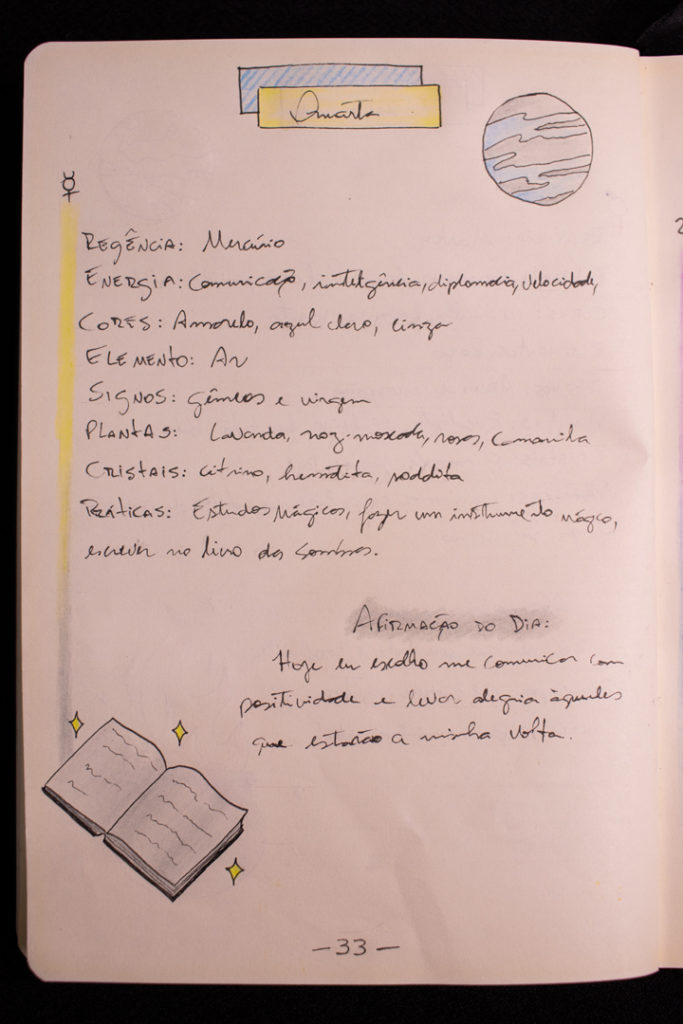 Quarta
☿
REGÊNCIA: Mercúrio
ENERGIA: Comunicação, inteligência, diplomacia, velocidade,
CORES: Amarelo, azul claro, cinza
ELEMENTO: Ar
SIGNOS: gêmeos e virgem
PLANTAS: Lavanda, noz-moscada, rosas, Camomila
CRISTAIS: citrino, hematita, sodalita
PRÁTICAS: Estudos Mágicos, fazer um instrumento mágico,
escrever no livro das Sombras.
AFIRMAÇÃO DO DIA:
Hoje eu escolho me comunicar com
positividade e levar alegria àqueles
que estarão a minha volta.
-33-